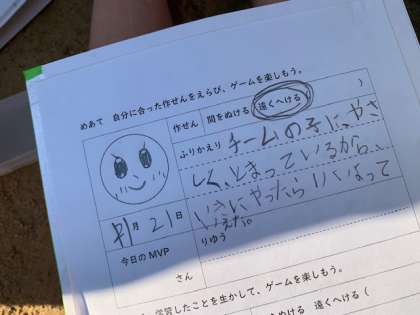 めあて 自分に合った作せんをえらび、ゲームを楽しもう。
作せん 間をぬける 遠くへける )
ふりかえり チームの子に、やさ
しく、とまっているから、
いきにやったらいいなって
いえた。
月 21日
今日のMVP
さん
りゆう
学習したことを生かして、ゲームを楽しもう。
ぬける 遠くへける (